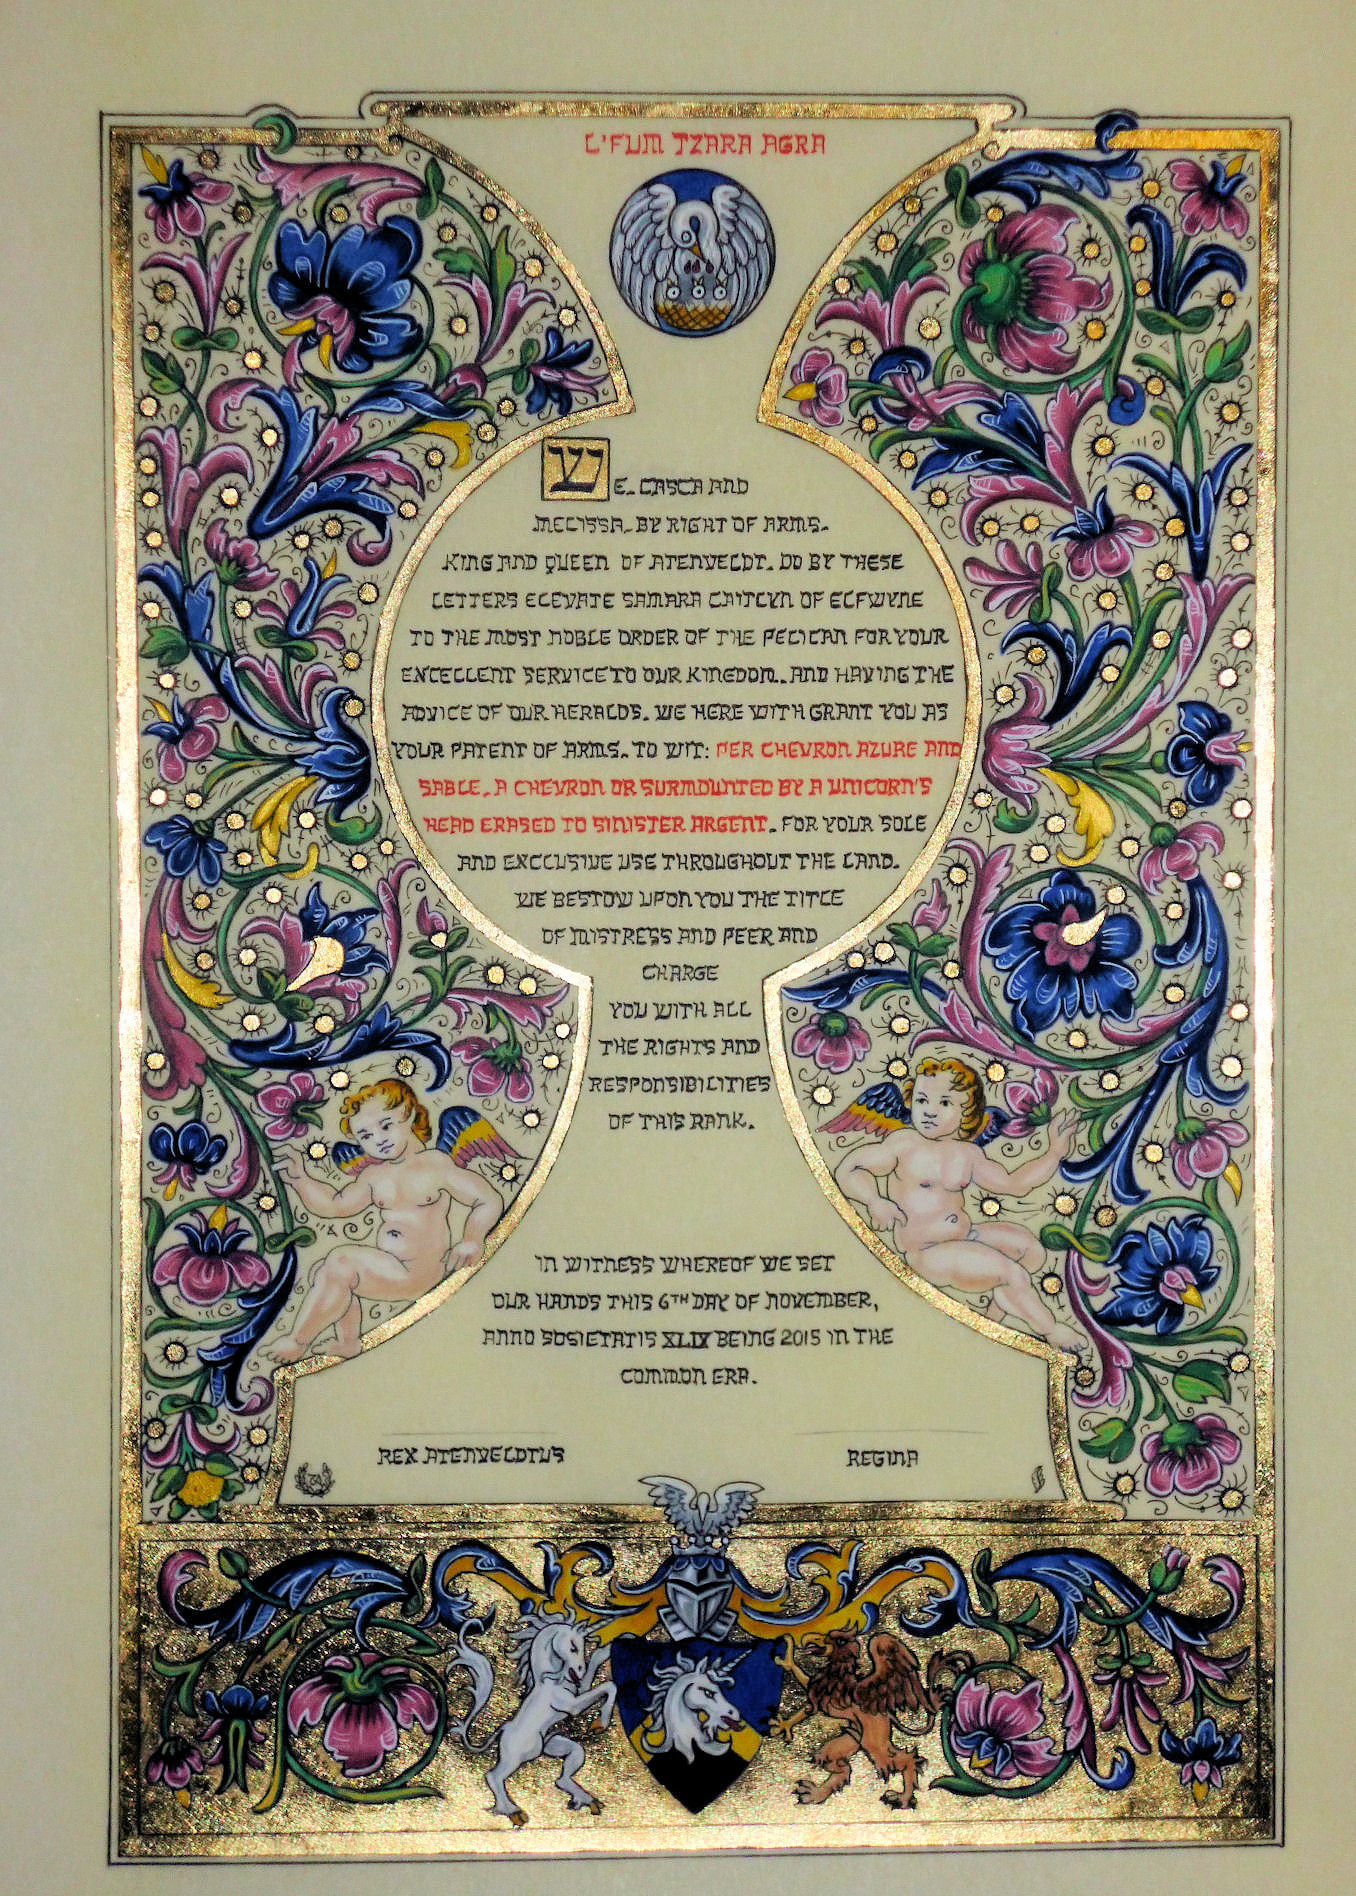 L'FUM TZARA AGRA
WE, CASCA AND
MELISSA, BY RIGHT OF ARMS,
KING AND QUEEN OF ATENVELDT, DO BY THESE
LETTERS ELEVATE SAMARA CAITLYN OF ELFWYNE
TO THE MOST NOBLE ORDER OF THE PELICAN FOR YOUR
EXCELLENT SERVICE TO OUR KINGDOM, AND HAVING THE
ADVICE OF OUR HERALDS, WE HERE WITH GRANT YOU AS
YOUR PATENT OF ARMS, TO WIT: PER CHEVRON AZURE AND
SABLE, A CHEVRON OR SURMOUNTED BY A UNICORN'S
HEAD ERASED TO SINISTER ARGENT, FOR YOUR SOLE
AND EXCLUSIVE USE THROUGHOUT THE LAND.
WE BESTOW UPON YOU THE TITLE
OF MISTRESS AND PEER AND
CHARGE
YOU WITH ALL
THE RIGHTS AND
RESPONSIBILITIES
OF THIS RANK.
IN WITNESS WHEREOF WE SET
OUR HANDS THIS 6TH DAY OF NOVEMBER,
ANNO SOSIETATIS XLIX BEING 2015 IN THE
COMMON ERA.
REX ATENVELDTUS REGINA